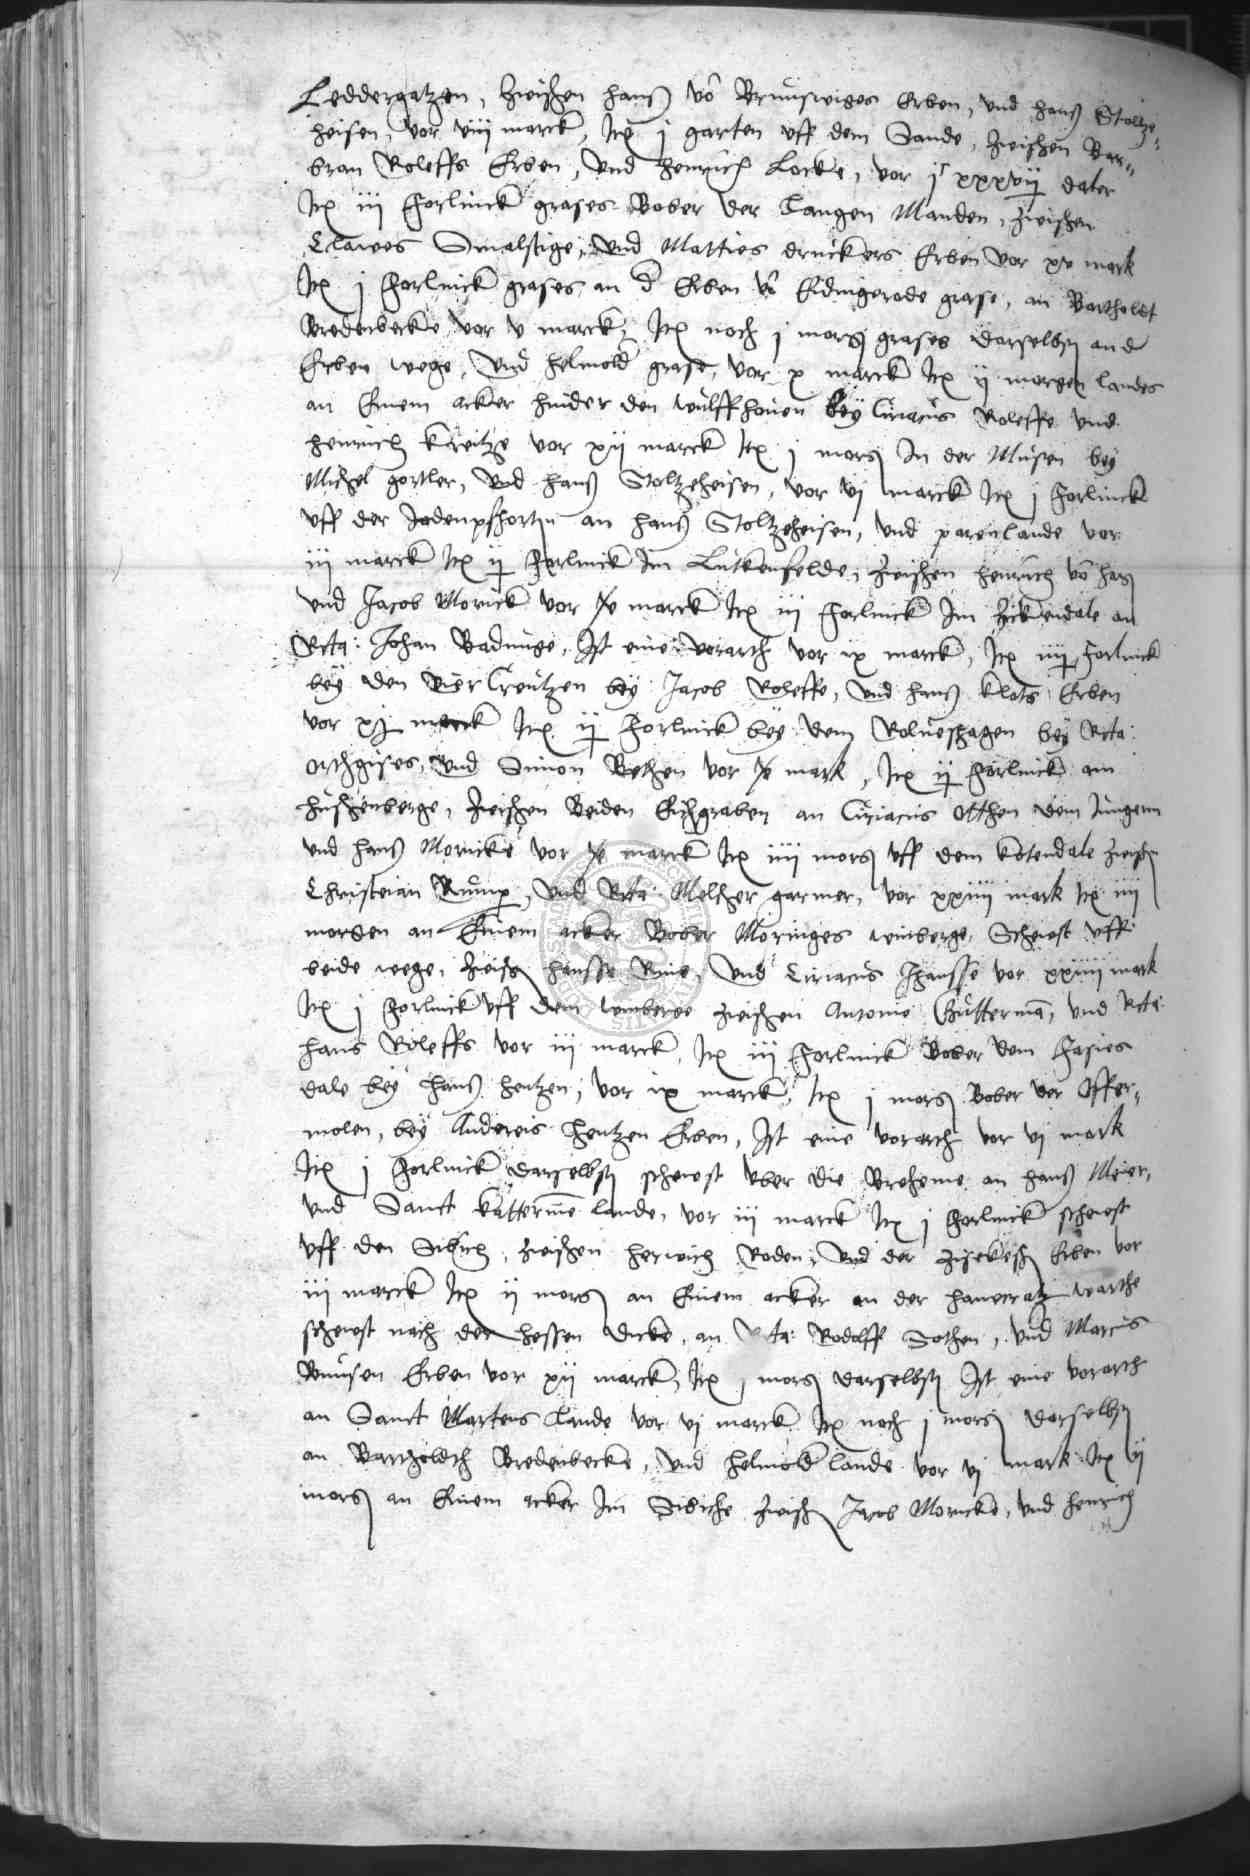 Leddergatzen, zwischen hanß vō Brunswiges Erben, vnd hanß Stoltze-
heisen, vor viij marck, Itē j garten vff dem Sande, zwischen Bar-
bran Roleffs Erben, vnd henrich Locke, vor jͨ xxxvij daler
Itē iij forlinck grases Bober der Langen Manden, zwischen
Clawes Smalstige, vnd Matties druckers Erben vor xv mark
Itē j forlinck grases an d Erben vō Eidingerode grase, an Bartholdt
Bredenbecke, vor v marck, Itē noch j morg grases darselbst an d
Erben wege, vnd helmold grase, vor x marck Itē ij morgen landes
an Einem acker hinder den wulffhouen bey Ciriacus Roleffs vnd
henrich kreitze vor xij marck Itē j morg In der Musen bey
Michel gortler, vnd hanß Stoltzeheisen, vor vj marck Itē j forlinck
vff der Jodenpfhortin an hanß Stoltzeheisen, vnd parenlande vor
iij marck Itē ij forlinck Im Lutkenfelde, zwischen henrich vō hag
vnd Jacob Morick vor x marck Itē iij forlinck Im Zickendale an
Rcta: Johan Badunge, Ist eine vorarth vor ix marck, Itē iiij forlinck
bey den Vier Creutzen bey Jacob Roleffs, vnd hanß klots Erben
vor xij marck Itē ij forlinck bey dem Rolueshagen bey Rcta:
orthgises, vnd Simon Bethen vor x mark, Itē ij forlinck am
huschenberge, zwischen Beiden Eichgraben an Ciriacus Otthen dem Jungern
vnd hanß Moricke vor x marck Itē iiij morg vff dem kotendale zwischen
Christian Rump, vnd Rcta: Melcher garmer, vor xxiiij mark Itē iiij
morgen an Einem acker Bober Moringes winberge, Scheust vff
beide wege, zwisch hansse Rine, vnd Ciriacus Ihansse vor xxiiij mark
Itē j forlinck vff dem winberge zwischen Antonio Gutterman, vnd Rcta:
hans Roleffs vor iij marck, Itē iij forlinck Bober dem hasies
dale bey hanß hentzen, vor ix marck, Itē j morg Bober der Offer-
molen, bey Andereis hentzen Erben, Ist eine vorarth vor vj mark
Itē j forlinck darselbst scheust vber die Breheme an hanß Meier,
vnd Sanct katterinē lande, vor iij marck Itē j forlinck scheust
vff den Sibich, zwischen herwich Roden, vnd der Zisekesch Erben vor
iij marck Itē ij morg an Einem acker an der hanecratz warthe
scheust nach der hessen dicke, an Rcta: Rodolff Sothen, vnd Marcus
Bunsen Erben vor xij marck, Itē j morg darselbst Ist eine vorarth
an Sanct Martens Lande vor vj marck Itē noch j morg darselbst
an Bartholdth Bredenbecke, vnd helmold lande vor vj mark Itē ij
morg an Einem acker Im Sibiche zwisch Jacob Moricke, vnd henrich